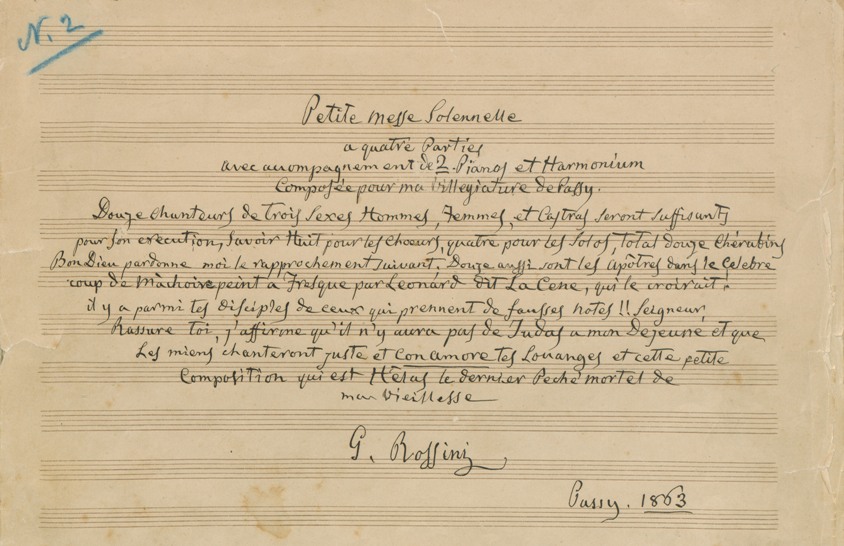 N. 2
Petite Messe Solennelle
a quatre Parties
avec accompagnement de 2 Pianos et Harmonium
Composée pour ma Villegiature de Passy.
Douze chanteurs de trois Sexes Hommes, Femmes, et Castras seront suffisants
pour son execution, Savoir Huit pour les Choeurs, quatre pour les Solos, total douze Chérubins
Bon Dieu pardonne moi le rapprochement suivant: Douze aussi sont les Apôtres dans le Celebre
coup de Mâchoire peint a Fresque par Leonard dit La Cene, qui le croirait:
il y a parmi tes disciples de ceux qui prennent de fausses notes!! Seigneur,
Rassure toi, j'affirme qu'il n'y aura pas de Judas a mon Dejeuné et que
Les miens chanteront juste et Con amore tes Louanges et cette petite
Composition qui est Hélas le dernier Peché mortel de
ma vieillesse
G. Rossini
Passy. 1863